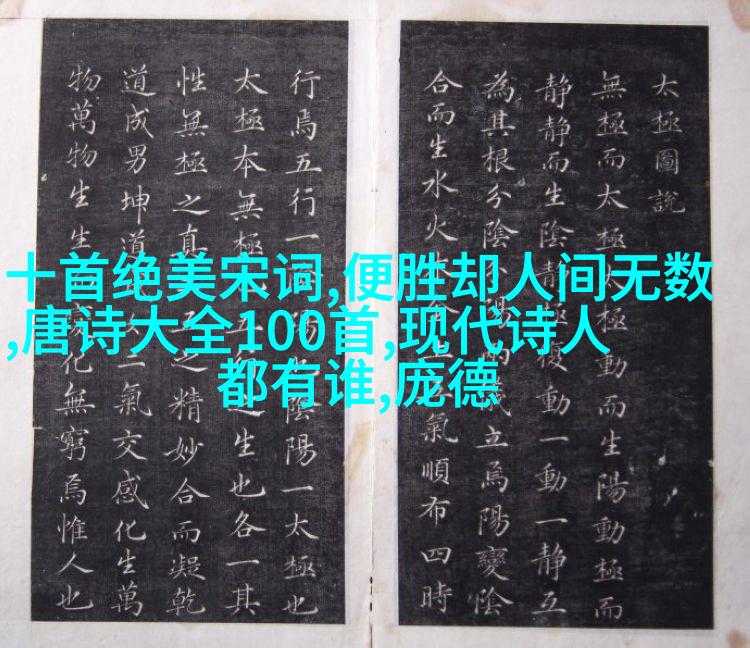 十首绝美宋词,便胜却人间无数
,唐诗大全100首,现代诗人
都有谁,庞德
太極圖說
無極而太極太極動而生陽動極而
静静而生陰静極復動一動一静互
為其根分陰分陽兩儀立焉陽變陰
合而生水火氣順布四時
行焉五行一陰陽也陰陽一太極也
太極本無極五行之生也各一其
性無極之真二五之精妙合而凝乾
道成男坤道女二氣交感化生萬
物萬物生生變化無窮焉惟人也